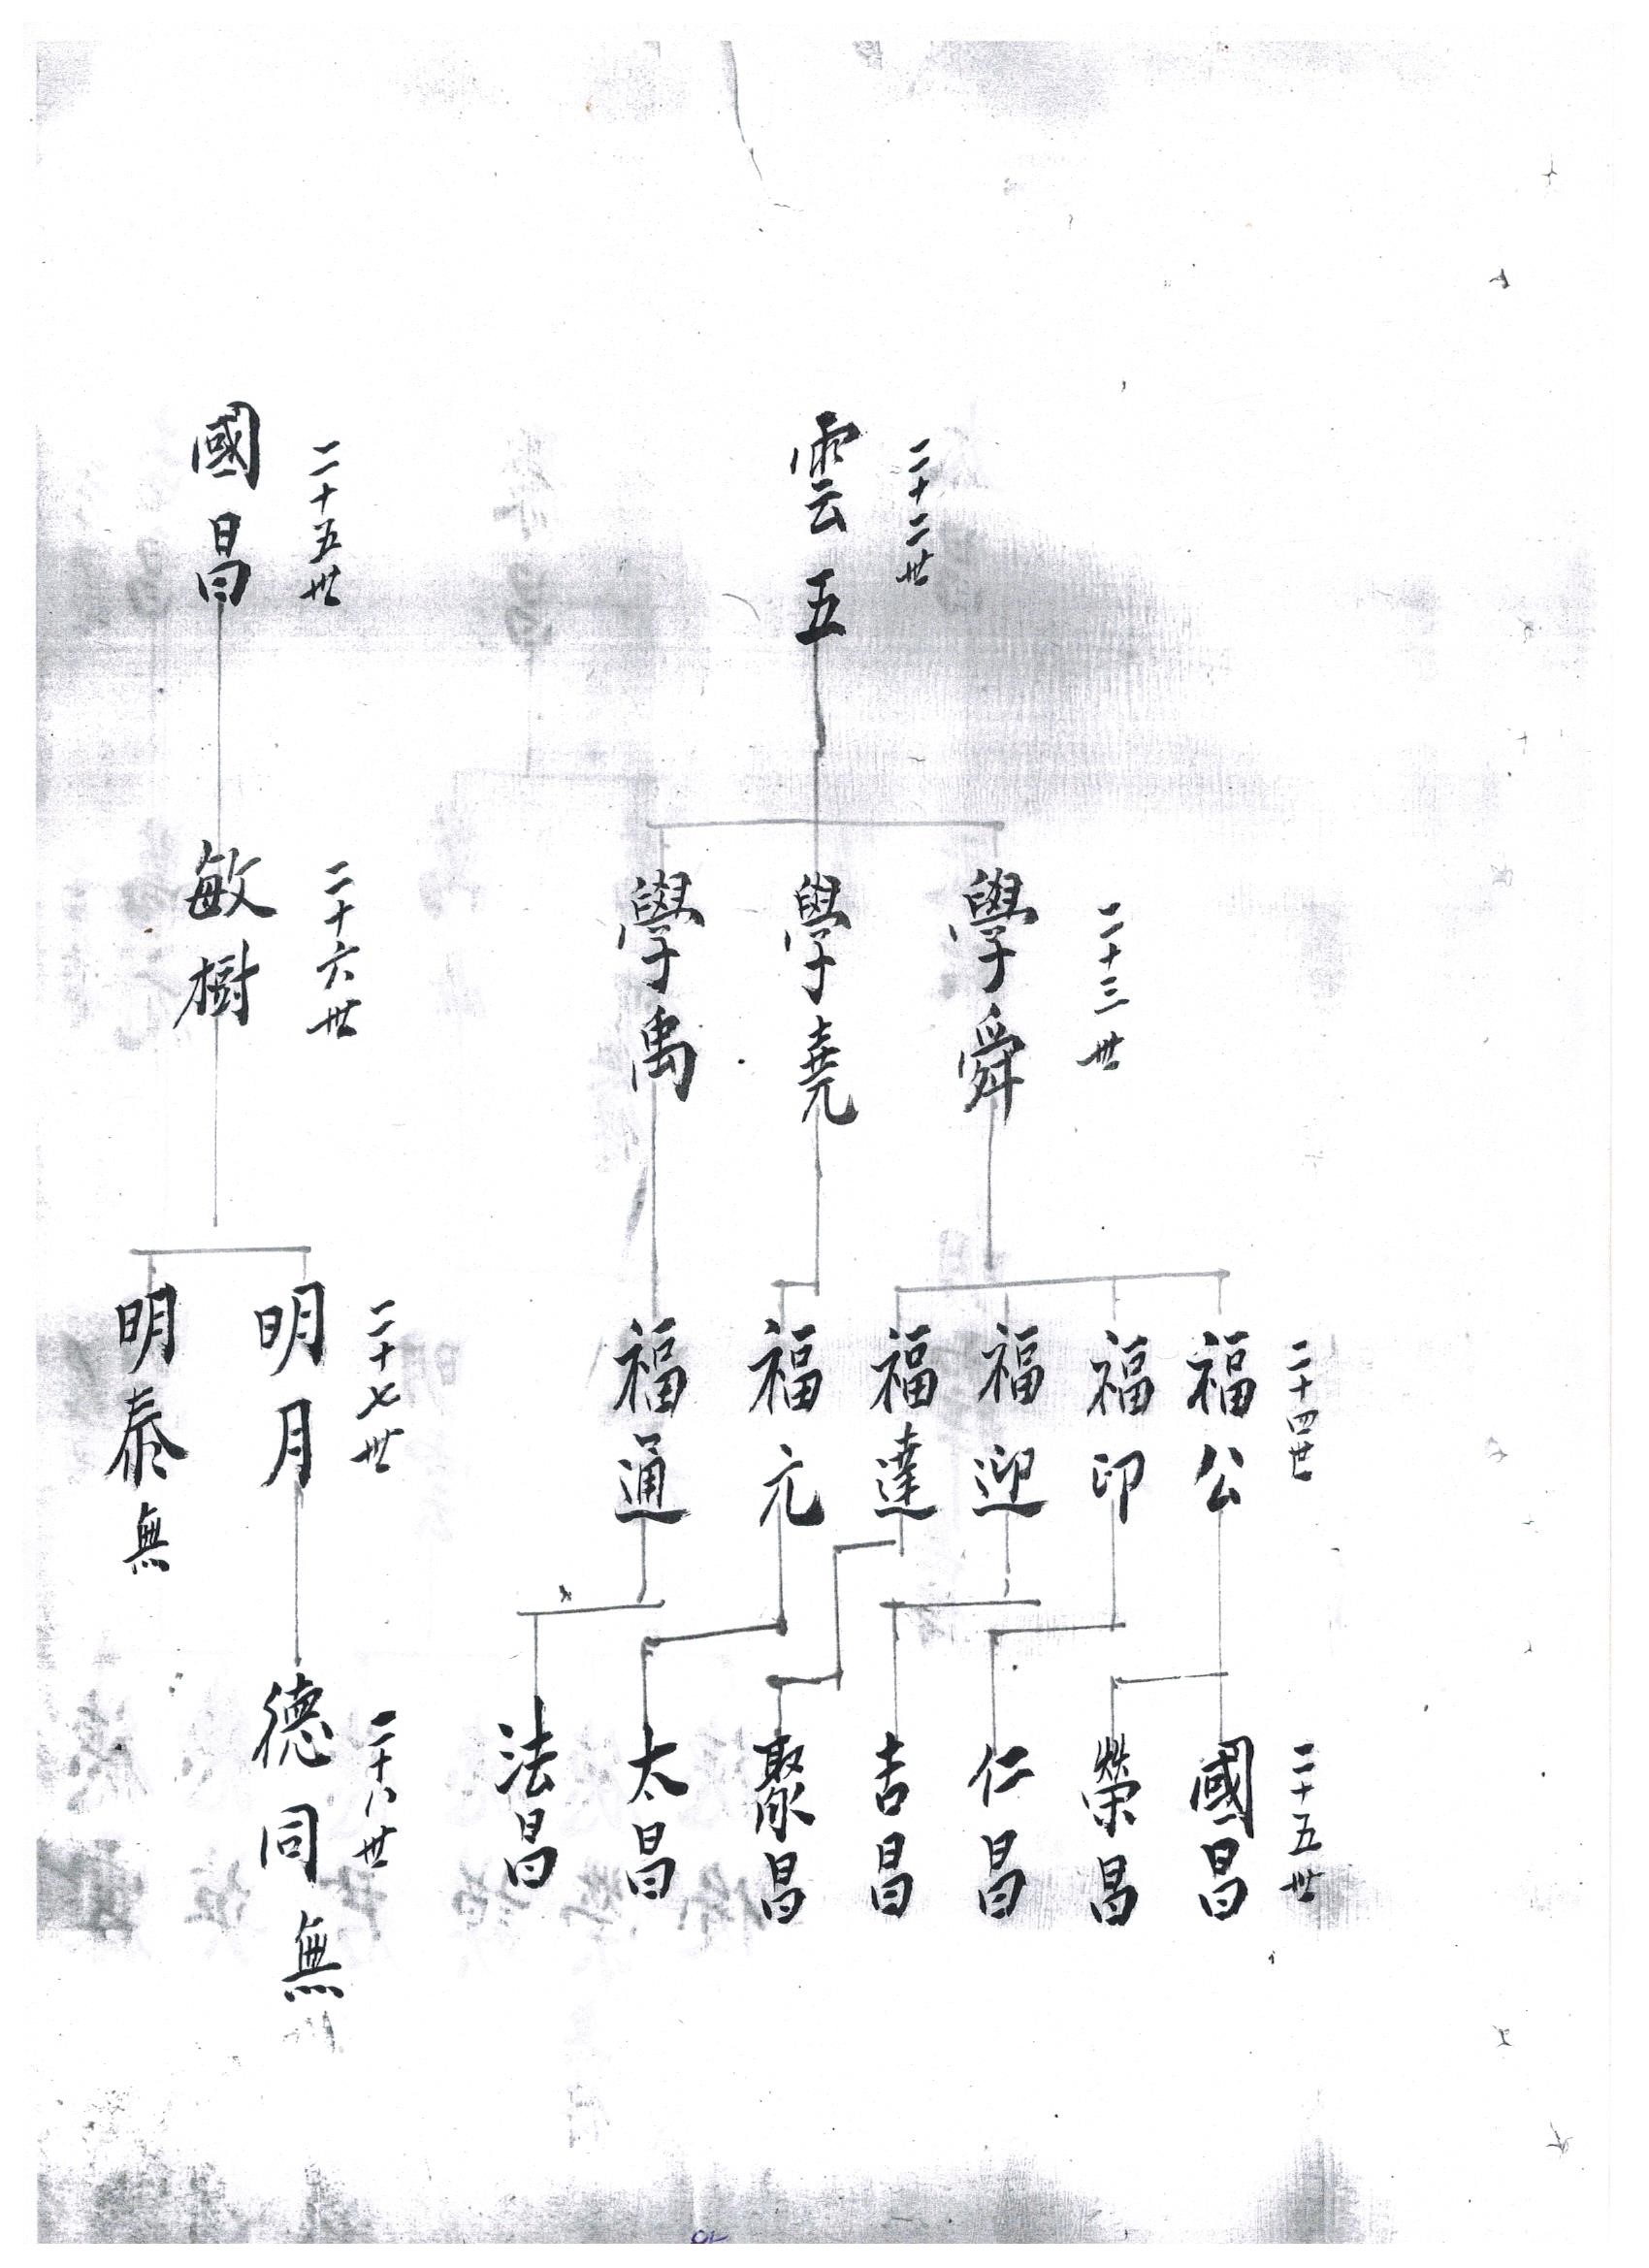 二十二世
雲五
二十三世
學舜
學堯
學禹
二十四世
福公
福印
福迎
福達
福元
福通
二十五世
國昌
榮昌
仁昌
吉昌
聚昌
太昌
法昌
二十五世
國昌
二十六世
敏樹
二十七世
明月
明泰無
二十八世
德同無